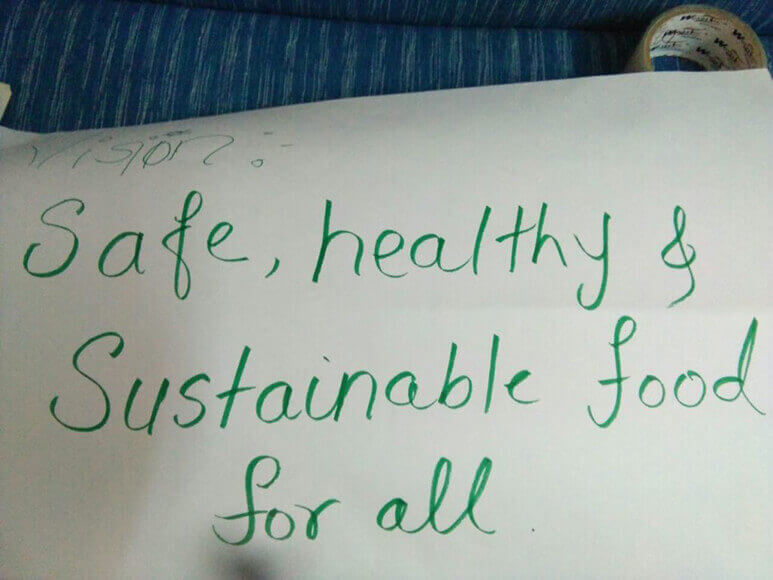 Vision:-
Safe, healthy &
Sustainable food
for all